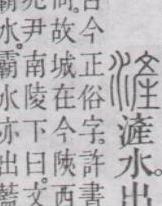 滻水。出
今正俗字。許書
故城在今陝西
尹南陵下曰。文
水。霸水亦出藍